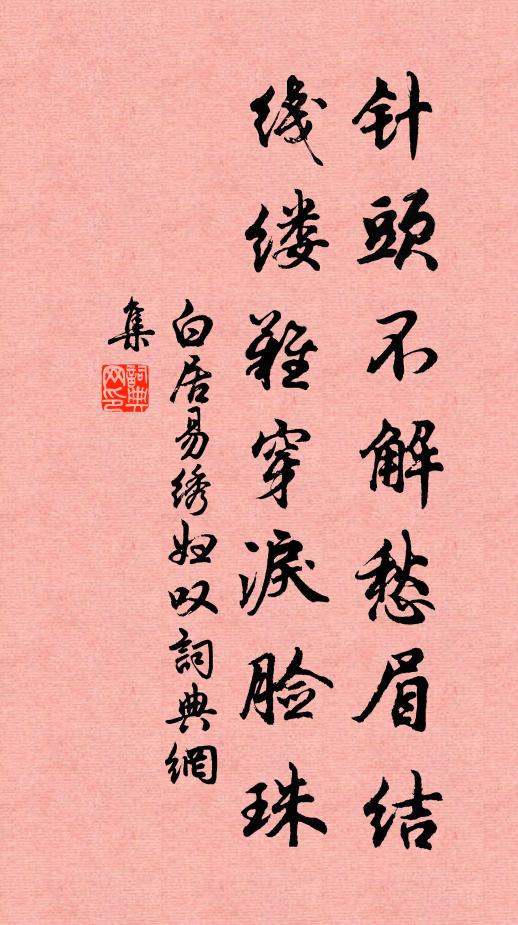 针頭不解愁眉结
线缕難穿淚脸珠
白居易绣妇叹詞典網
集
詞典网印